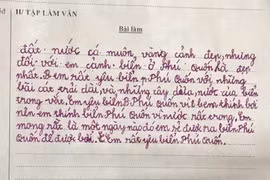 II/ TẬP LÀM VĂN
Bài làm
đất nước có muôn vàng cảnh đẹp, nhưng
đối với em cảnh biển ở Phú Quốn là đẹp
nhất. Em rất yêu biển Phú Quốn với những
bãi cát trải dài, và những cây dừa, nước của biển
trong vắt. Em yêu biển Phú Quốn vì em thích bơi
nên em thích biển Phú Quốn vì nước rất trong, Em
mong rằng là một ngày nào đó em sẽ được ra biển Phú
Quốn để được bơi. Em rất yêu biển Phú Quốn.